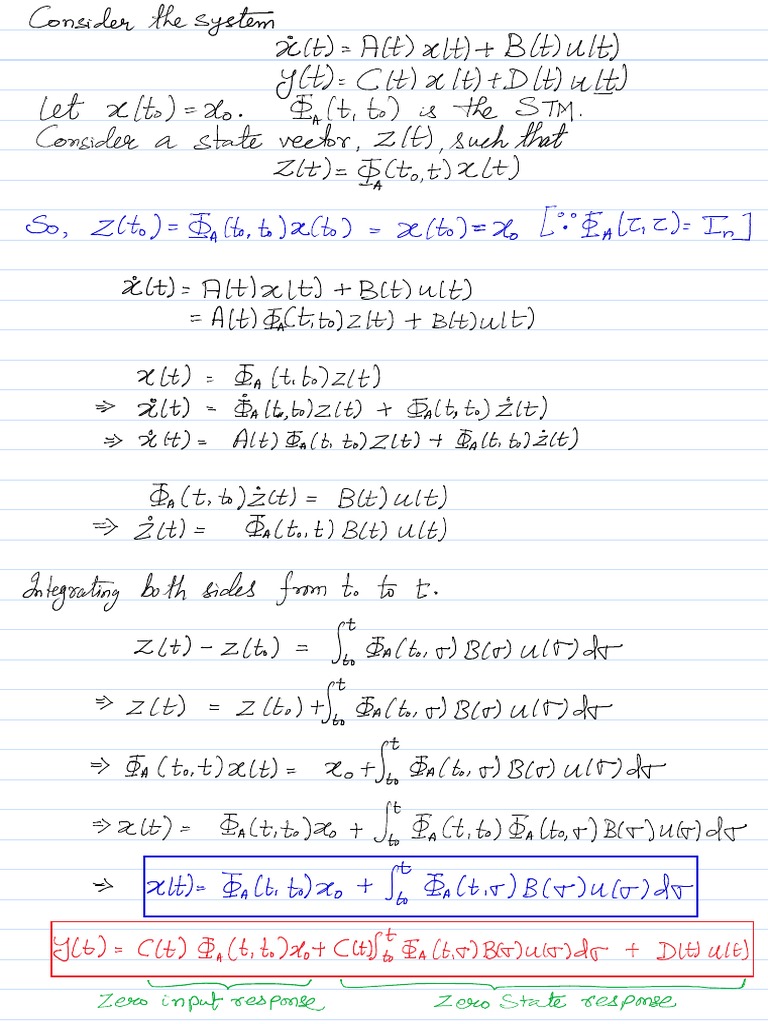 Consider the system
ẋ(t) = A(t) x(t) + B(t) u(t)
y(t) = C(t) x(t) + D(t) u(t)
Let x(t₀) = x₀. Φ_A(t, t₀) is the STM.
Consider a state vector, z(t), such that
z(t) = Φ_A(t₀, t) x(t)
So, z(t₀) = Φ_A(t₀, t₀) x(t₀) = x(t₀) = x₀ [∵ Φ_A(τ, τ) = I_n]
ẋ(t) = A(t) x(t) + B(t) u(t)
= A(t) Φ_A(t, t₀) z(t) + B(t) u(t)
x(t) = Φ_A(t, t₀) z(t)
⇒ ẋ(t) = Φ̇_A(t, t₀) z(t) + Φ_A(t, t₀) ż(t)
⇒ ẋ(t) = A(t) Φ_A(t, t₀) z(t) + Φ_A(t, t₀) ż(t)
Φ_A(t, t₀) ż(t) = B(t) u(t)
⇒ ż(t) = Φ_A(t₀, t) B(t) u(t)
Integrating both sides from t₀ to t.
z(t) − z(t₀) = ∫_{t₀}^{t} Φ_A(t₀, σ) B(σ) u(σ) dσ
⇒ z(t) = z(t₀) + ∫_{t₀}^{t} Φ_A(t₀, σ) B(σ) u(σ) dσ
⇒ Φ_A(t₀, t) x(t) = x₀ + ∫_{t₀}^{t} Φ_A(t₀, σ) B(σ) u(σ) dσ
⇒ x(t) = Φ_A(t, t₀) x₀ + ∫_{t₀}^{t} Φ_A(t, t₀) Φ_A(t₀, σ) B(σ) u(σ) dσ
⇒ x(t) = Φ_A(t, t₀) x₀ + ∫_{t₀}^{t} Φ_A(t, σ) B(σ) u(σ) dσ
y(t) = C(t) Φ_A(t, t₀) x₀ + C(t) ∫_{t₀}^{t} Φ_A(t, σ) B(σ) u(σ) dσ + D(t) u(t)
Zero input response Zero State response